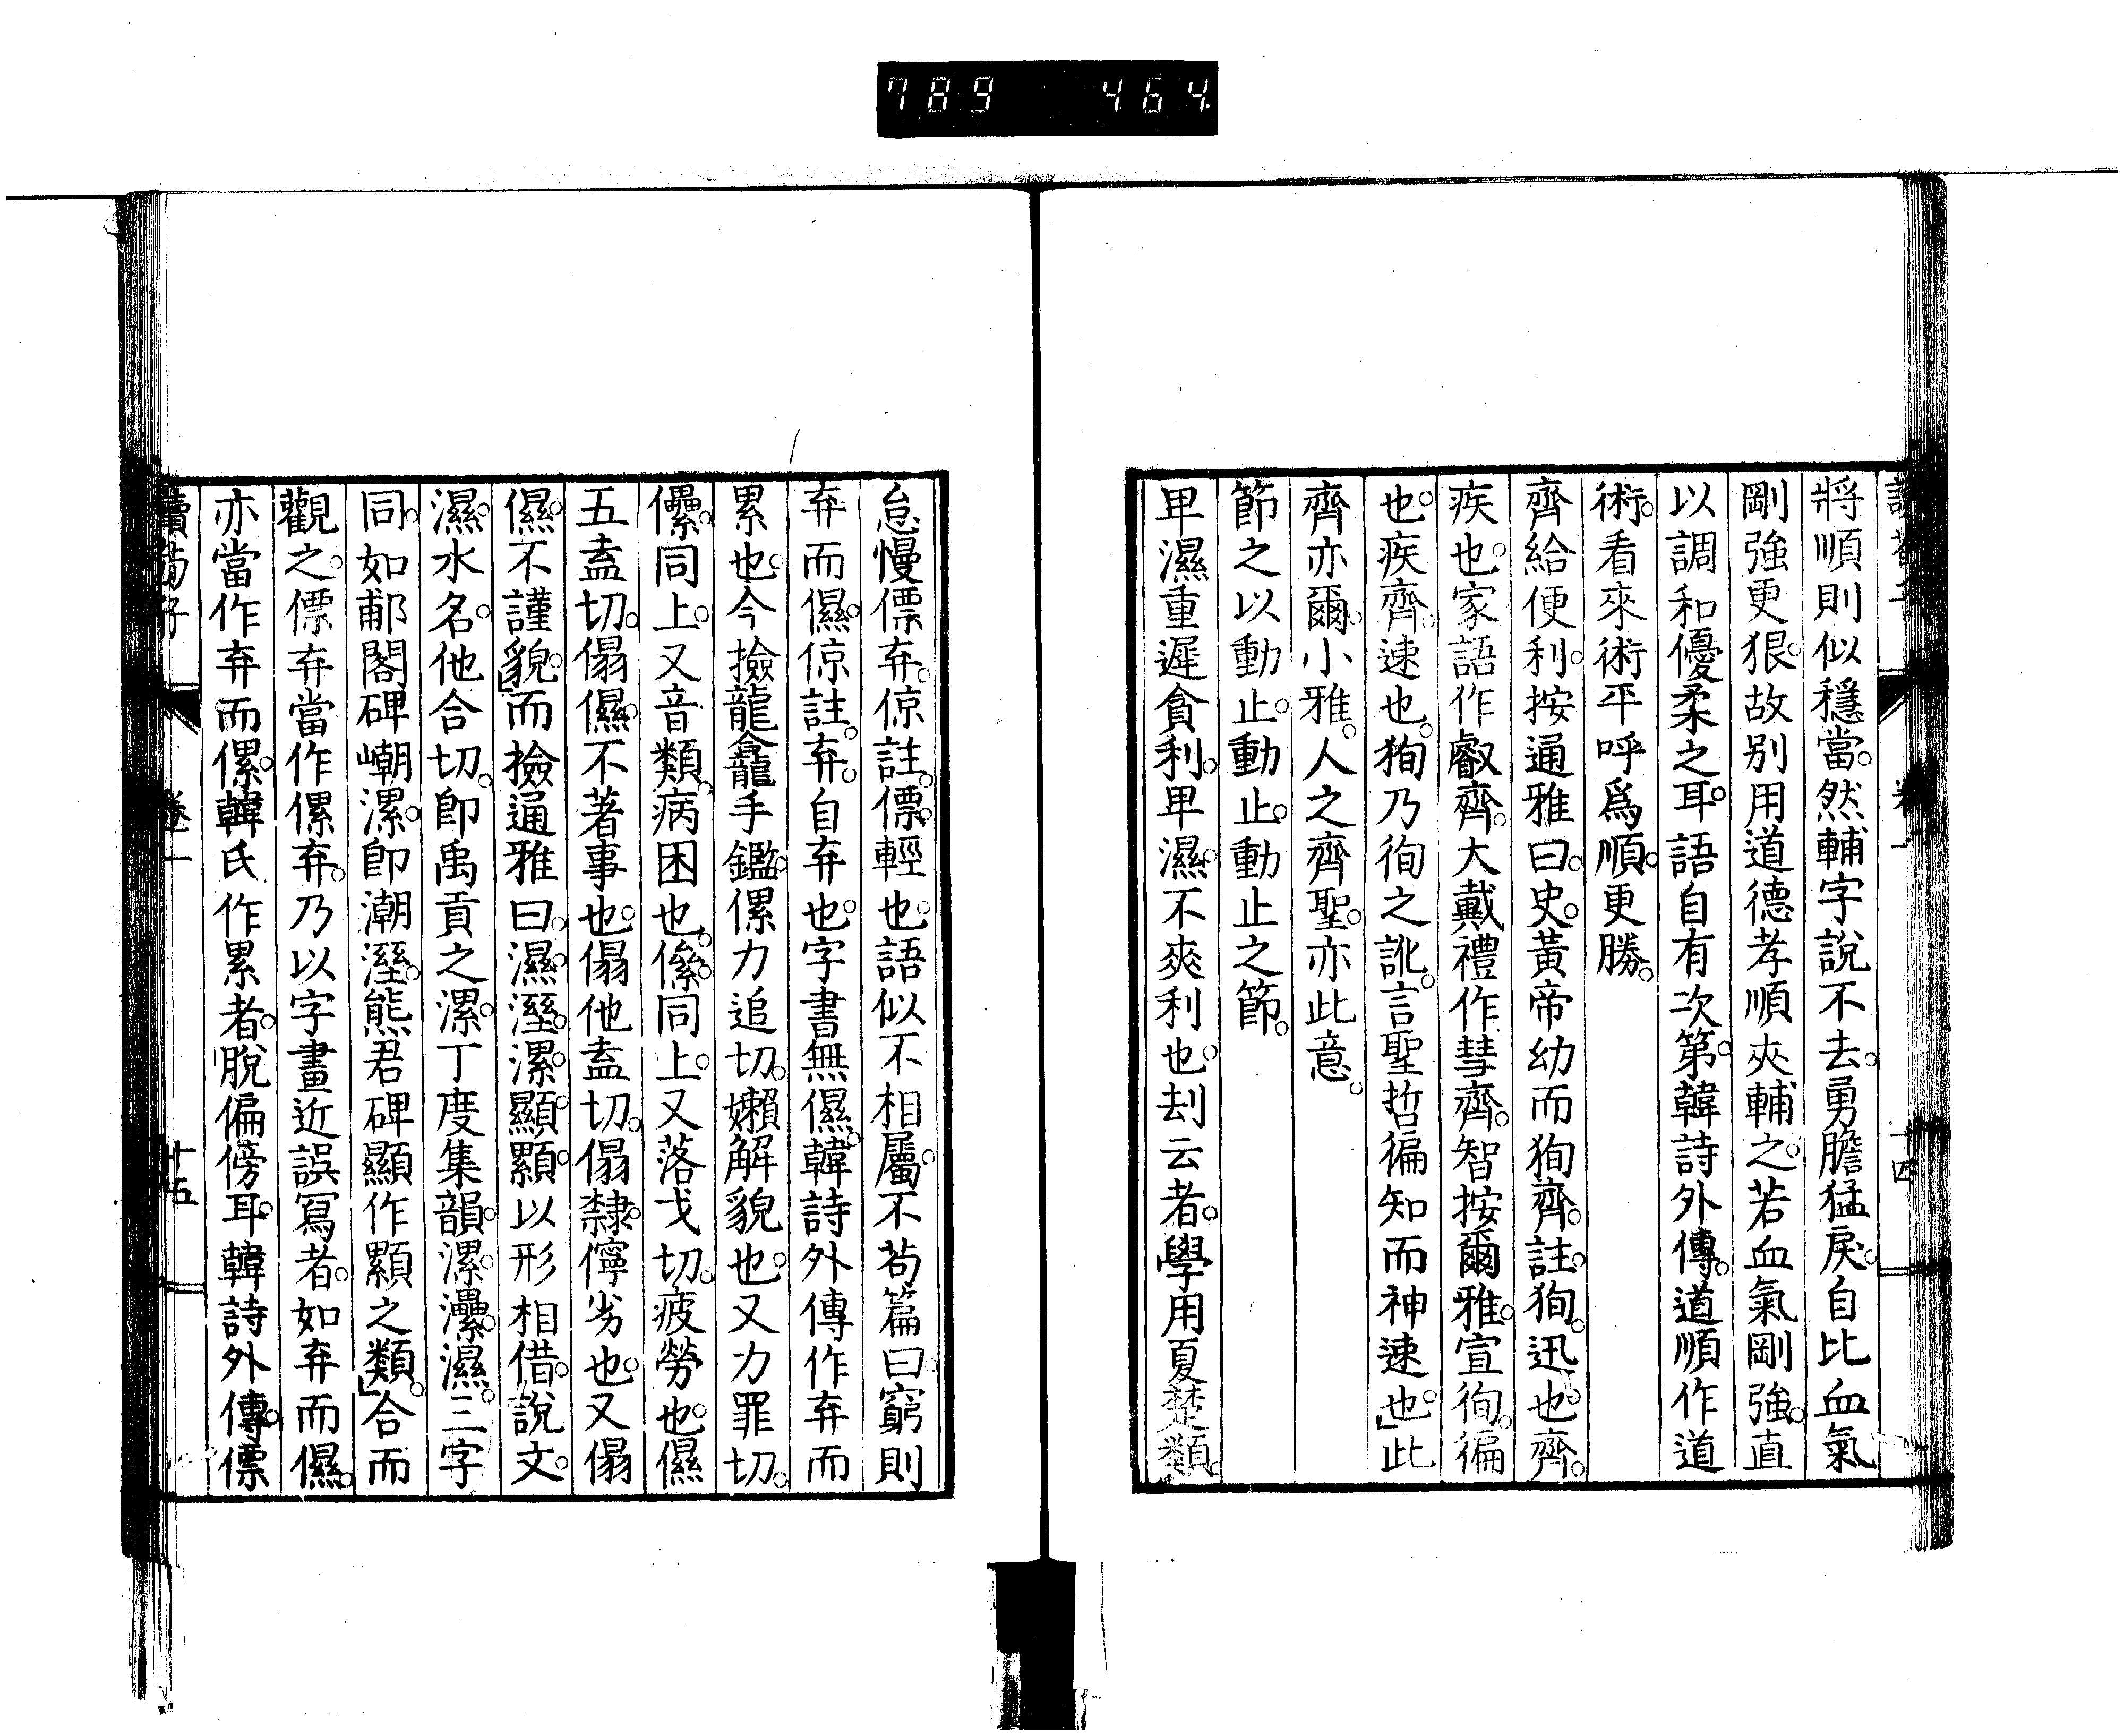 789 464
將順則似穩當。然輔字說不去。勇膽猛戾。自比血氣
剛強更狠。故別用道德孝順夾輔之。若血氣剛強。直
以調和優柔之耳。語自有次第。韓詩外傳。道順作道
術。看來術平呼爲順。更勝。
齊給便利。按通雅曰。史。黃帝幼而狥齊。註。狥。迅也。齊。
疾也。家語作叡齊。大戴禮作彗齊。智按爾雅。宣徇。徧
也。疾齊。速也。狥乃徇之訛。言聖哲徧知而神速也」此
齊亦爾。小雅。人之齊聖。亦此意。
節之以動止。動止。動止之節。
卑濕重遲貪利。卑濕。不爽利也。刦云者。學用夏楚類。
怠慢僄弃。倞註。僄。輕也。語似不相屬。不苟篇曰窮則
弃而儑。倞註。弃。自弃也。字書無儑。韓詩外傳作弃而
累也。今撿龍龕手鑑。傫力追切。嬾解貌也。又力罪切。
儽。同上。又音類。病困也。㒍。同上。又落戈切。疲勞也。儑
五盍切。傝儑。不著事也。傝他盍切。傝𣜩。儜劣也。又傝
儑。不謹貌」而撿通雅曰。濕。溼。漯。顯。㬎。以形相借。說文。
濕。水名。他合切。卽禹貢之漯。丁度集韻。漯。灅。濕。三字
同。如郙閣碑嘲漯。卽潮溼。熊君碑顯作顕之類」合而
觀之。僄弃當作傫弃。乃以字畫近誤冩者。如弃而儑。
亦當作弃而傫。韓氏作累者。脫偏傍耳。韓詩外傳。僄
讀荀子 卷一 十五